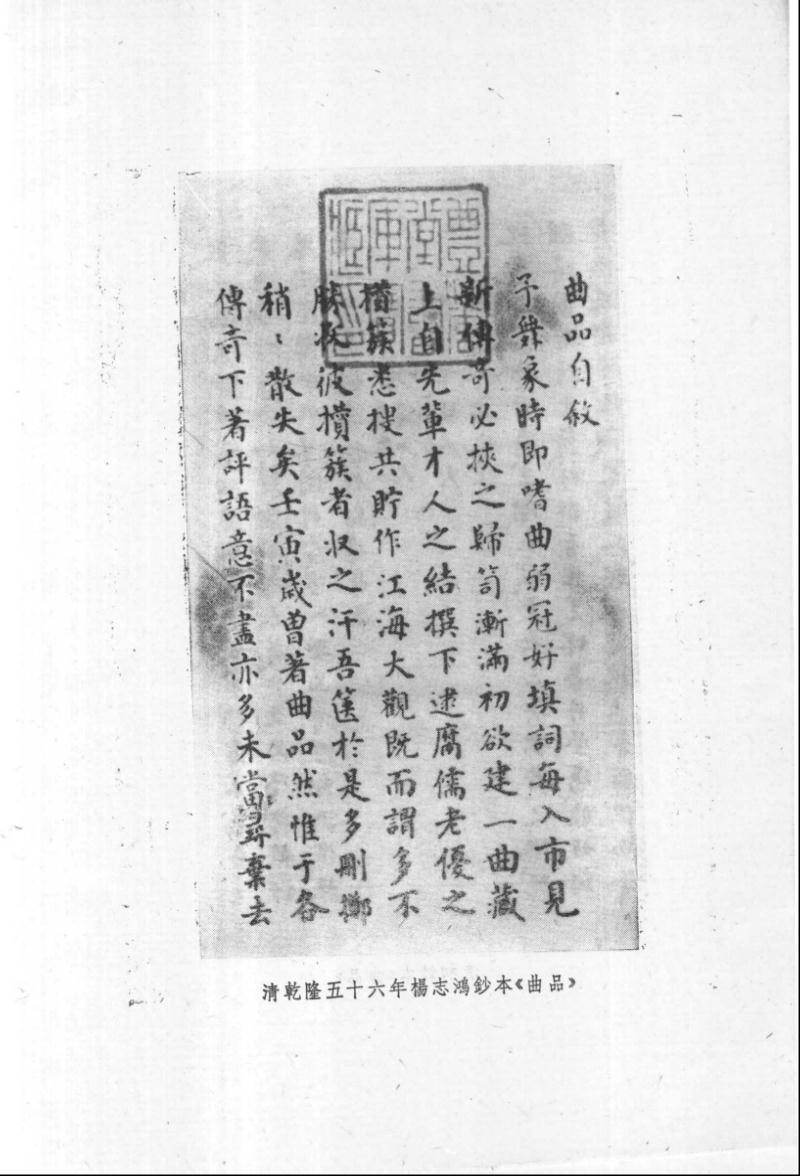 曲品自敘
予舞象時即嗜曲弱冠好填詞每入市見
新傳奇必挾之歸笥漸滿初欲建一曲藏
上自先輩才人之結撰下逮腐儒老優之
攢簇悉搜共貯作江海大觀既而謂多不
勝收彼攢簇者收之汙吾篋於是多刪擲
稍〻散失矣壬寅歲曾著曲品然惟于各
傳奇下著評語意不盡亦多未當尋棄去
清乾隆五十六年楊志鴻鈔本《曲品》